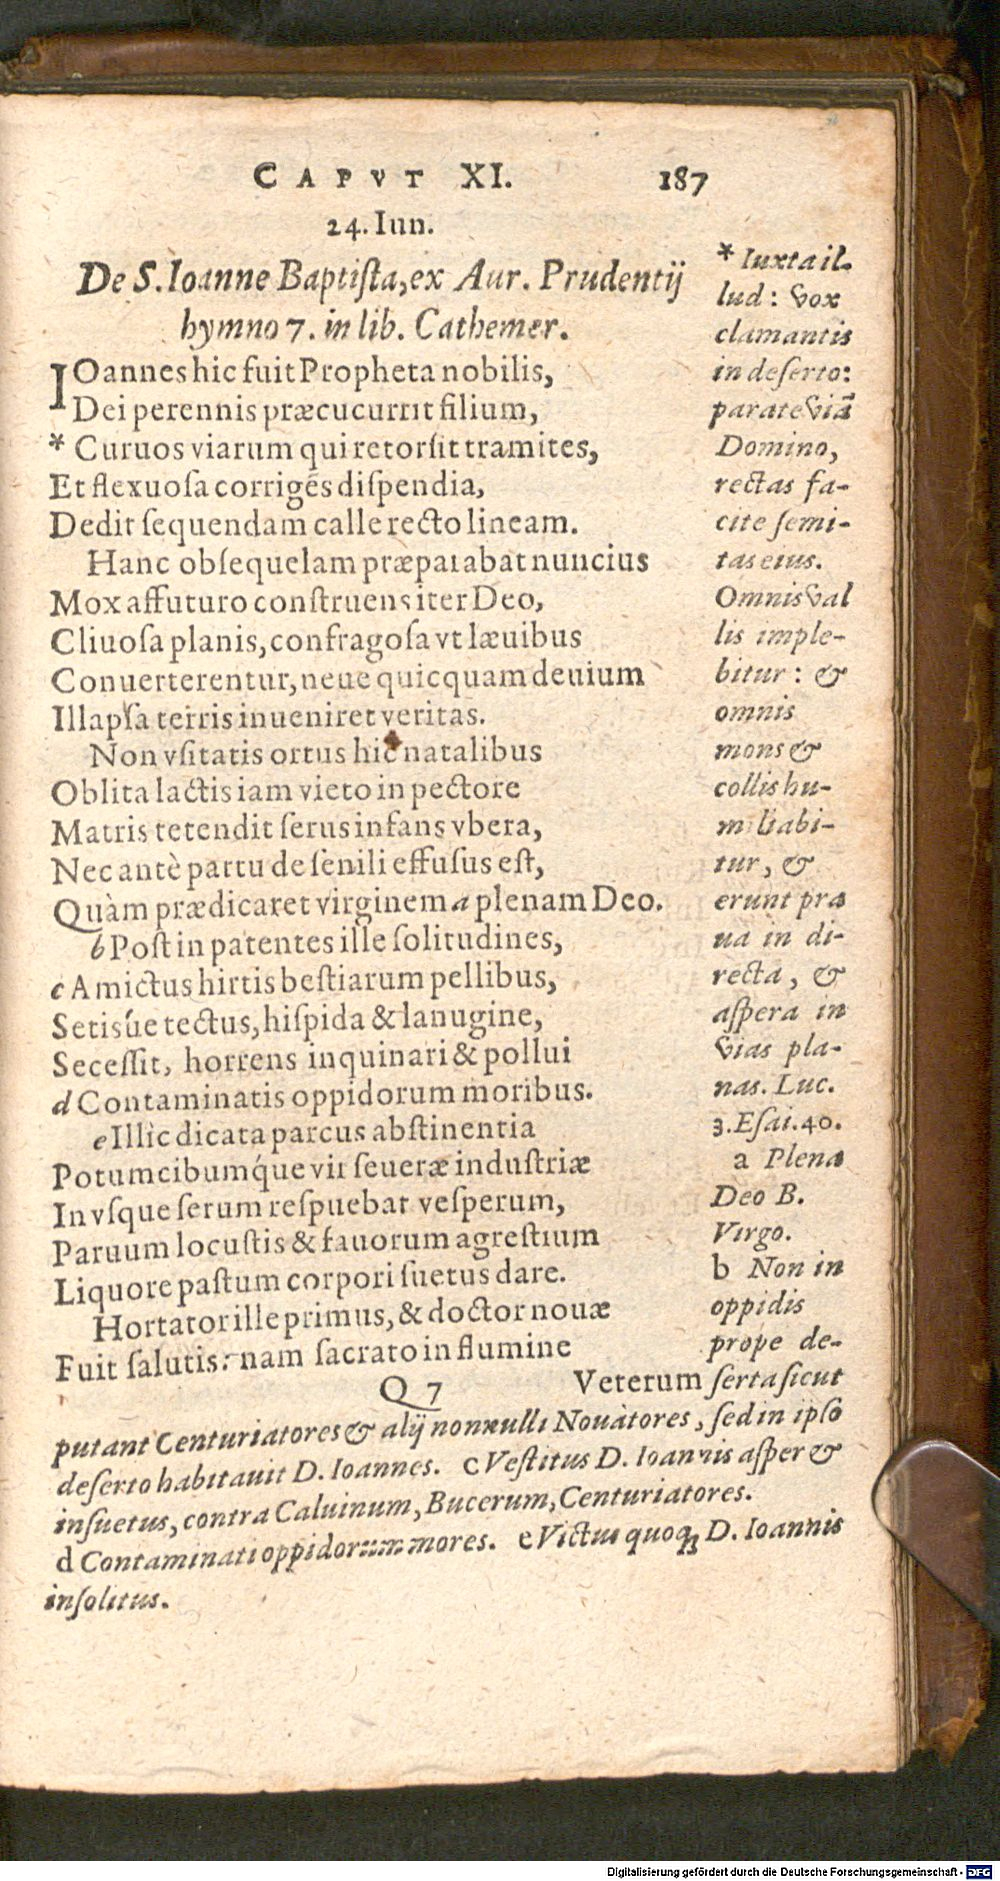 CAPVT XI. 187
24. Iun.
De S. Ioanne Baptiſta, ex Aur. Prudentij
hymno 7. in lib. Cathemer.
IOannes hic fuit Propheta nobilis,
Dei perennis præcucurrit filium,
* Curuos viarum qui retorſit tramites,
Et flexuoſa corrigẽs diſpendia,
Dedit ſequendam calle recto lineam.
Hanc obſequelam præparabat nuncius
Mox affuturo conſtruens iter Deo,
Cliuoſa planis, confragoſa vt læuibus
Conuerterentur, neue quicquam deuium
Illapſa terris inueniret veritas.
Non vſitatis ortus hic natalibus
Oblita lactis iam vieto in pectore
Matris tetendit ſerus infans vbera,
Nec antè partu de ſenili effuſus eſt,
Quàm prædicaret virginem a plenam Deo.
b Poſt in patentes ille ſolitudines,
c Amictus hirtis beſtiarum pellibus,
Setisúe tectus, hiſpida & lanugine,
Seceſſit, horrens inquinari & pollui
d Contaminatis oppidorum moribus.
e Illîc dicata parcus abſtinentia
Potum cibumq́ue vir ſeueræ induſtriæ
In vſque ſerum reſpuebat veſperum,
Paruum locuſtis & fauorum agreſtium
Liquore paſtum corpori ſuetus dare.
Hortator ille primus, & doctor nouæ
Fuit ſalutis: nam ſacrato in flumine
Q 7 Veterum
* Iuxta il-
lud: vox
clamantis
in deſerto:
parate viã
Domino,
rectas fa-
cite ſemi-
tas eius.
Omnis val
lis imple-
bitur: &
omnis
mons &
collis hu-
miliabi-
tur, &
erunt pra
ua in di-
recta, &
aſpera in
vias pla-
nas. Luc.
3. Eſai. 40.
a Plena
Deo B.
Virgo.
b Non in
oppidis
prope de-
ſerta ſicut
putant Centuriatores & alij nonnulli Nouatores, ſed in ipſo
deſerto habitauit D. Ioannes. c Veſtitus D. Ioannis aſper &
inſuetus, contra Caluinum, Bucerum, Centuriatores.
d Contaminati oppidorum mores. e Victus quoq; D. Ioannis
inſolitus.
Digitalisierung gefördert durch die Deutsche Forschungsgemeinschaft - DFG